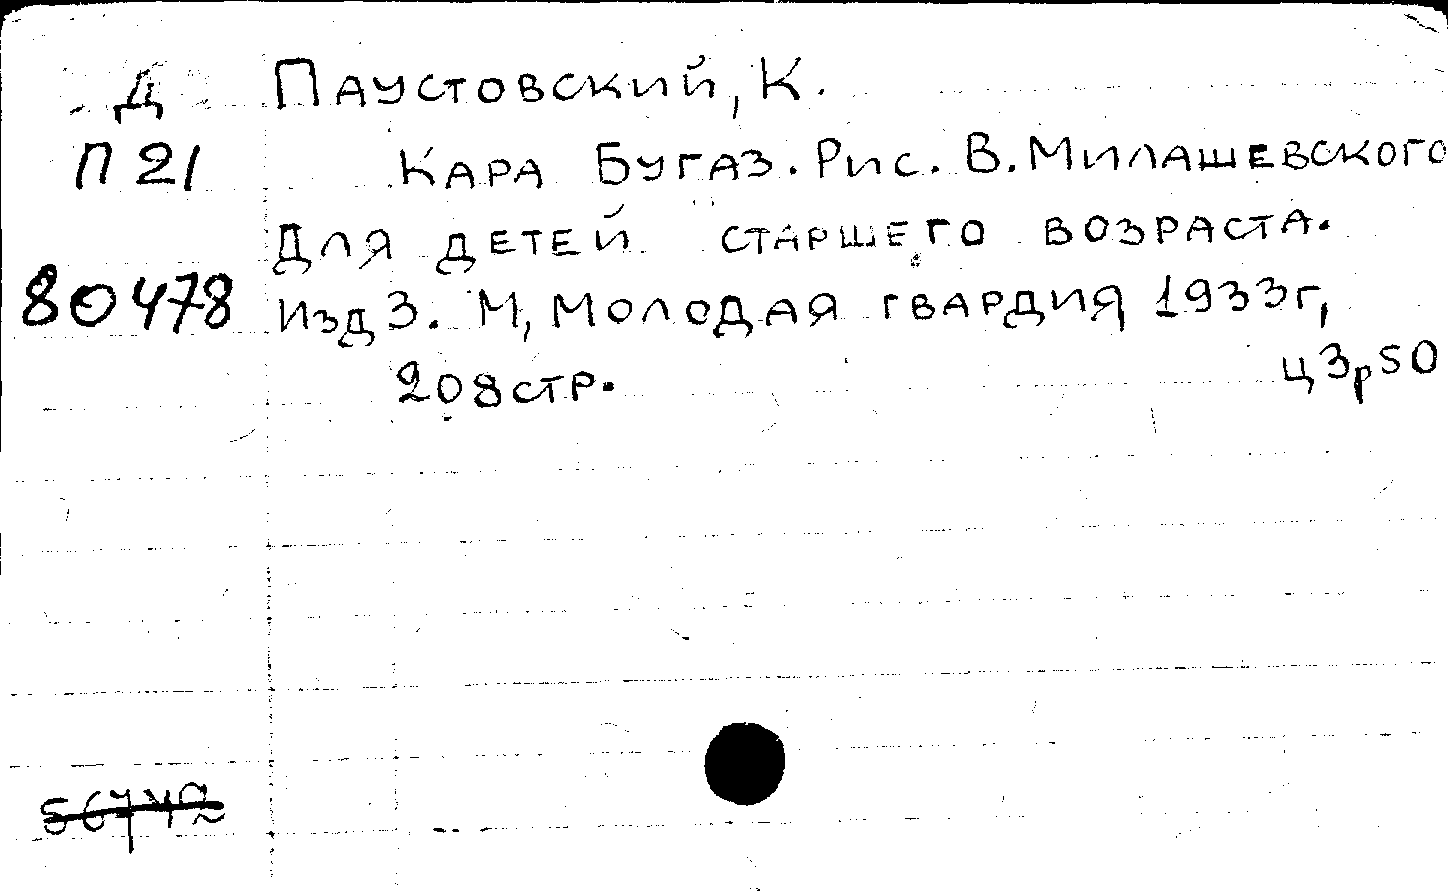 Д Паустовский, К.
П 21 Кара Бугаз. Рис. В. Милашевского
Для детей старшего возраста.
80478 Изд 3. М, Молодая гвардия, 1933г,
208 стр. ц 3р50